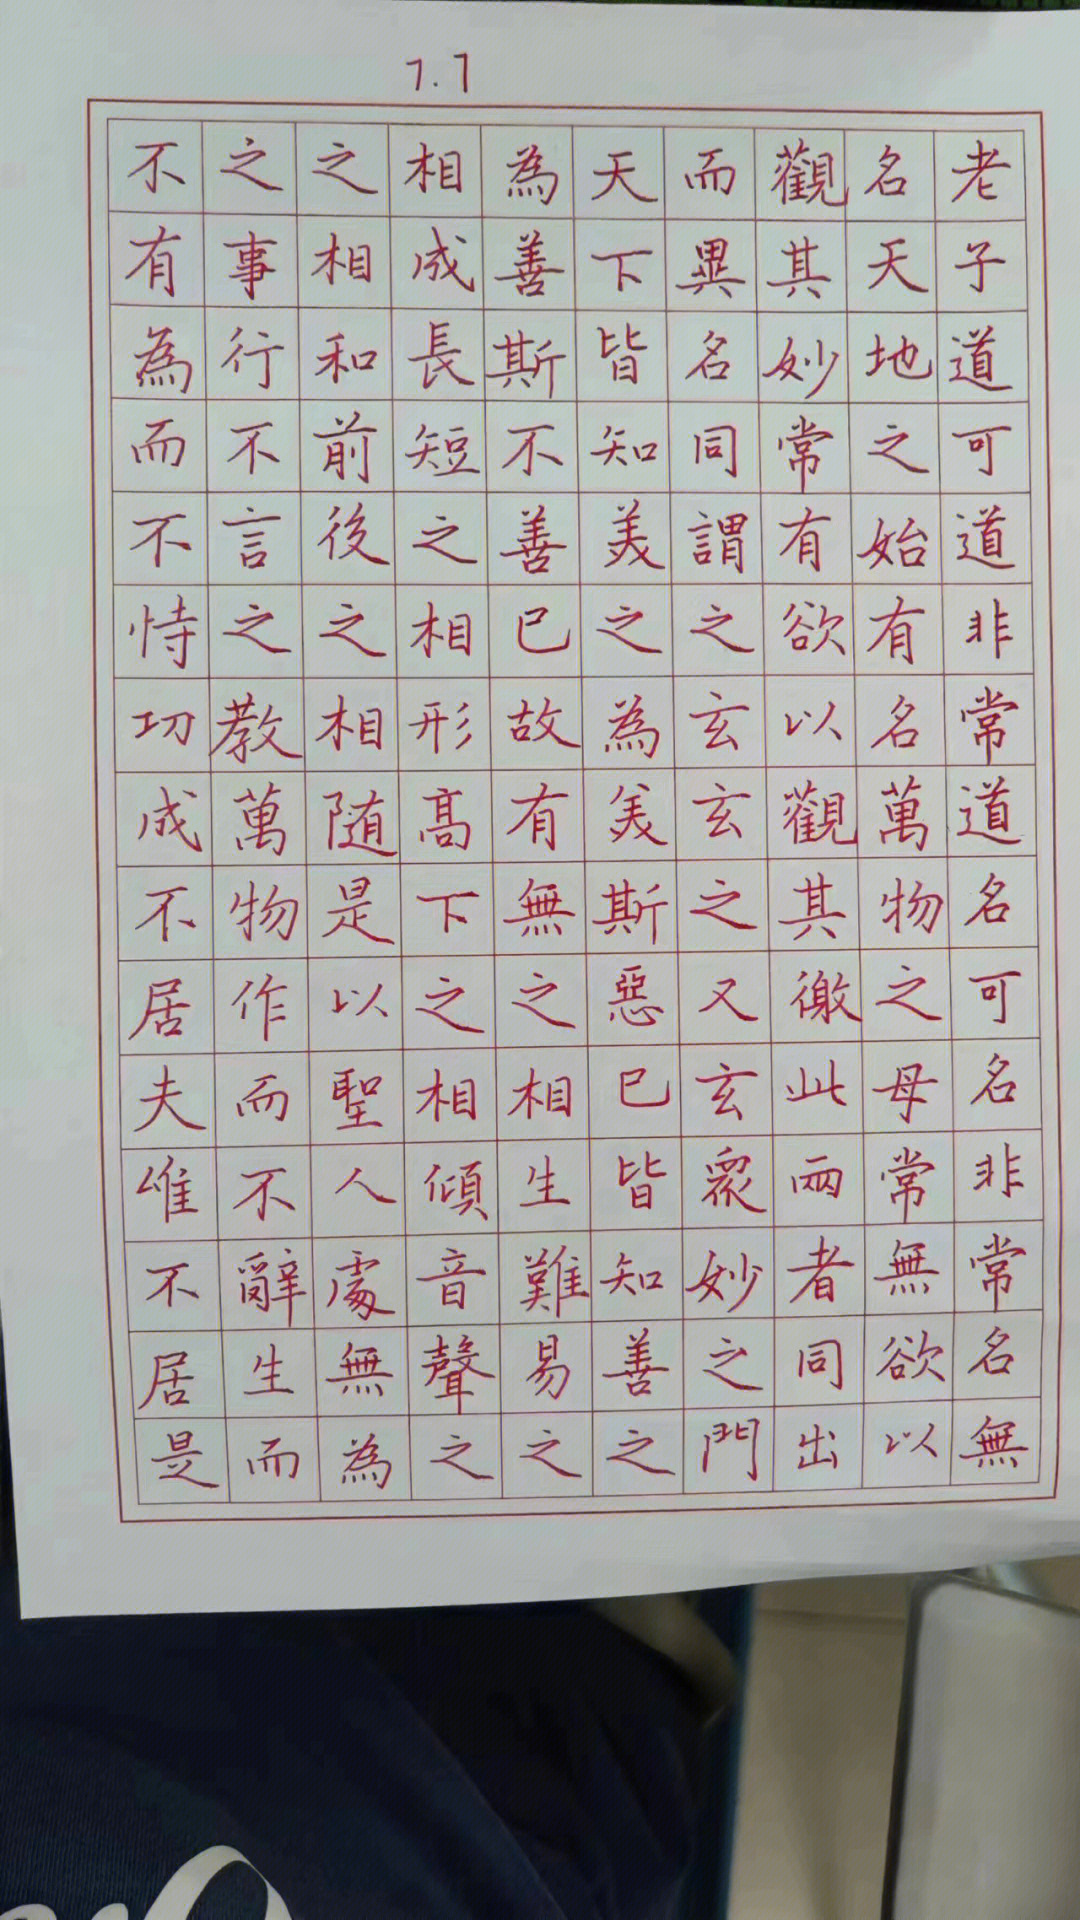 7.7
老子道可道非常道名可名非常名無
名天地之始有名萬物之母常無欲以
觀其妙常有欲以觀其徼此兩者同出
而異名同謂之玄玄之又玄眾妙之門
天下皆知美之為美斯惡已皆知善之
為善斯不善已故有無之相生難易之
相成長短之相形高下之相傾音聲之
之相和前後之相随是以聖人處無為
之事行不言之教萬物作而不辭生而
不有為而不恃功成不居夫唯不居是